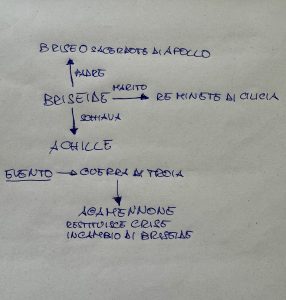 BRISEO SACERDOTE DI APOLLO
PADRE
BRISEIDE
MARITO
RE MINETE DI CILICIA
SCHIAVA
ACHILLE
EVENTO
GUERRA DI TROIA
AGAMENNONE
RESTITUISCE CRISE
IN CAMBIO DI BRISEIDE